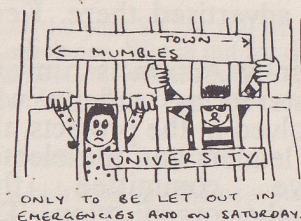 TOWN →
← MUMBLES
UNIVERSITY
ONLY TO BE LET OUT IN
EMERGENCIES AND ON SATURDAY.